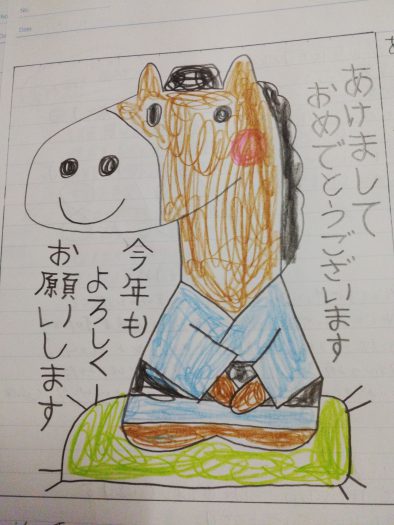 No.
Date
あけまして
おめでとうございます
今年も
よろしく
お願いします